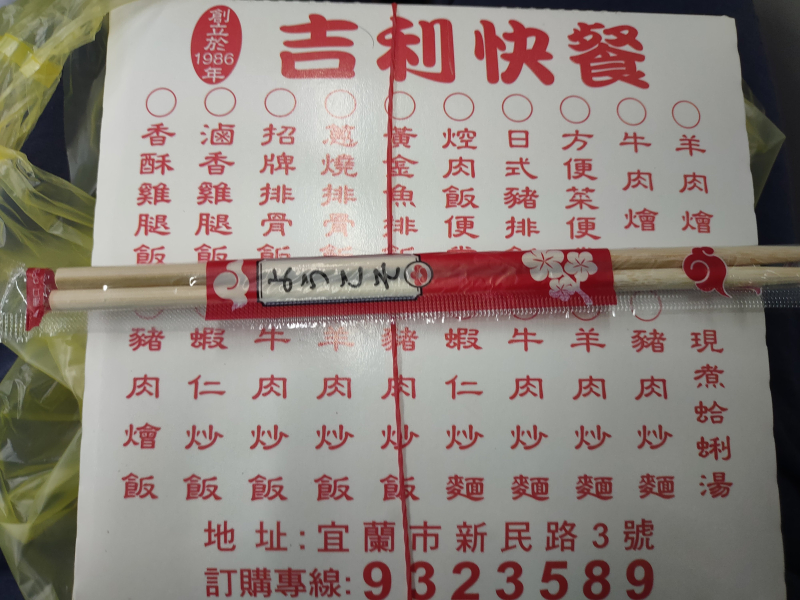 創立於
1986
年
吉利快餐
香酥雞腿飯
滷香雞腿飯
招牌排骨飯
蔥燒排骨飯
黃金魚排
焢肉飯便
日式豬排
方便菜便
牛肉燴
羊肉燴
ようこそ
豬肉燴飯
蝦仁炒飯
牛肉炒飯
羊肉炒飯
豬肉炒飯
蝦仁炒麵
牛肉炒麵
羊肉炒麵
豬肉炒麵
現煮蛤蜊湯
地址:宜蘭市新民路3號
訂購專線:9323589